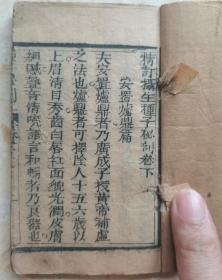 精訂攝生種子秘剖卷下
安置爐鼎篇
夫安置爐鼎者乃廣成子授黃帝補虛
之法也爐鼎者可擇陰人十五六歲以
上眉清目秀齒白唇紅面貌光潤皮膚
細膩聲音清喨語言和暢者乃良器也